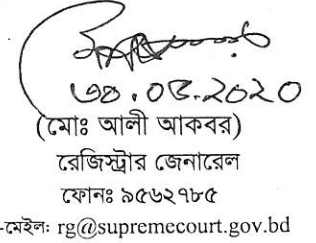 ৩০.০৪.২০২০
(মোঃ আলী আকবর)
রেজিস্ট্রার জেনারেল
ফোনঃ ৯৫৬২৭৮৫
-মেইলঃ rg@supremecourt.gov.bd